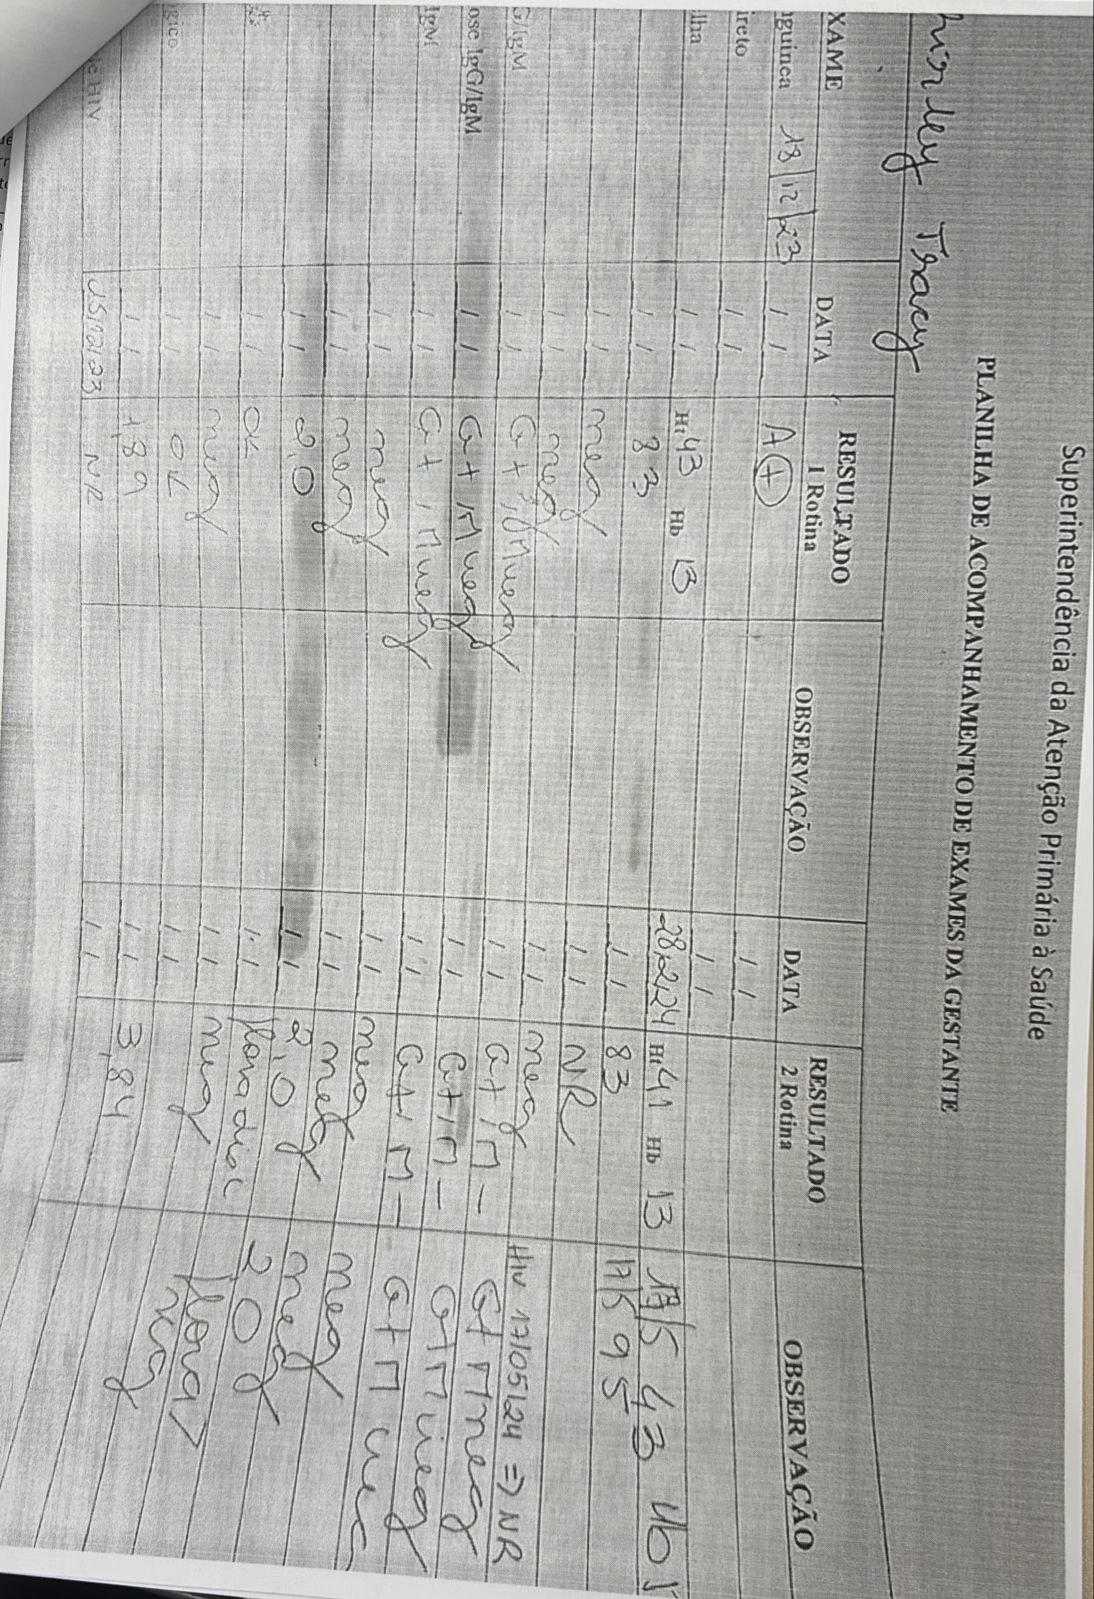 Superintendência da Atenção Primária à Saúde
PLANILHA DE ACOMPANHAMENTO DE EXAMES DA GESTANTE
hirley Tracy
XAME DATA RESULTADO 1 Rotina OBSERVAÇÃO DATA RESULTADO 2 Rotina OBSERVAÇÃO
nguinea 18/12/23 / / A(+) / /
ireto / / / /
ilha / / Ht 43 Hb 13 28/2/24 Ht 41 Hb 13 17/5 43 Hb 1
/ / 83 / / 83 17/5 95
/ / neg / / NR
/ / neg / / neg HIV 17/05/24 => NR
G/IgM / / G+, M neg / / G+ M- G+ M neg
ose IgG/IgM / / G+, M neg / / G+ M- G+ M neg
IgM / / G+, M neg / / G+, M- G+ M ne
/ / neg / / neg neg
/ / neg / / neg neg
/ / 20 / / 2,0 2,0
/ / OK / /
/ / neg / / neg neg
gico / / OK / /
/ / 1,89 / / 3,84
de HIV 15/12/23 NR / /